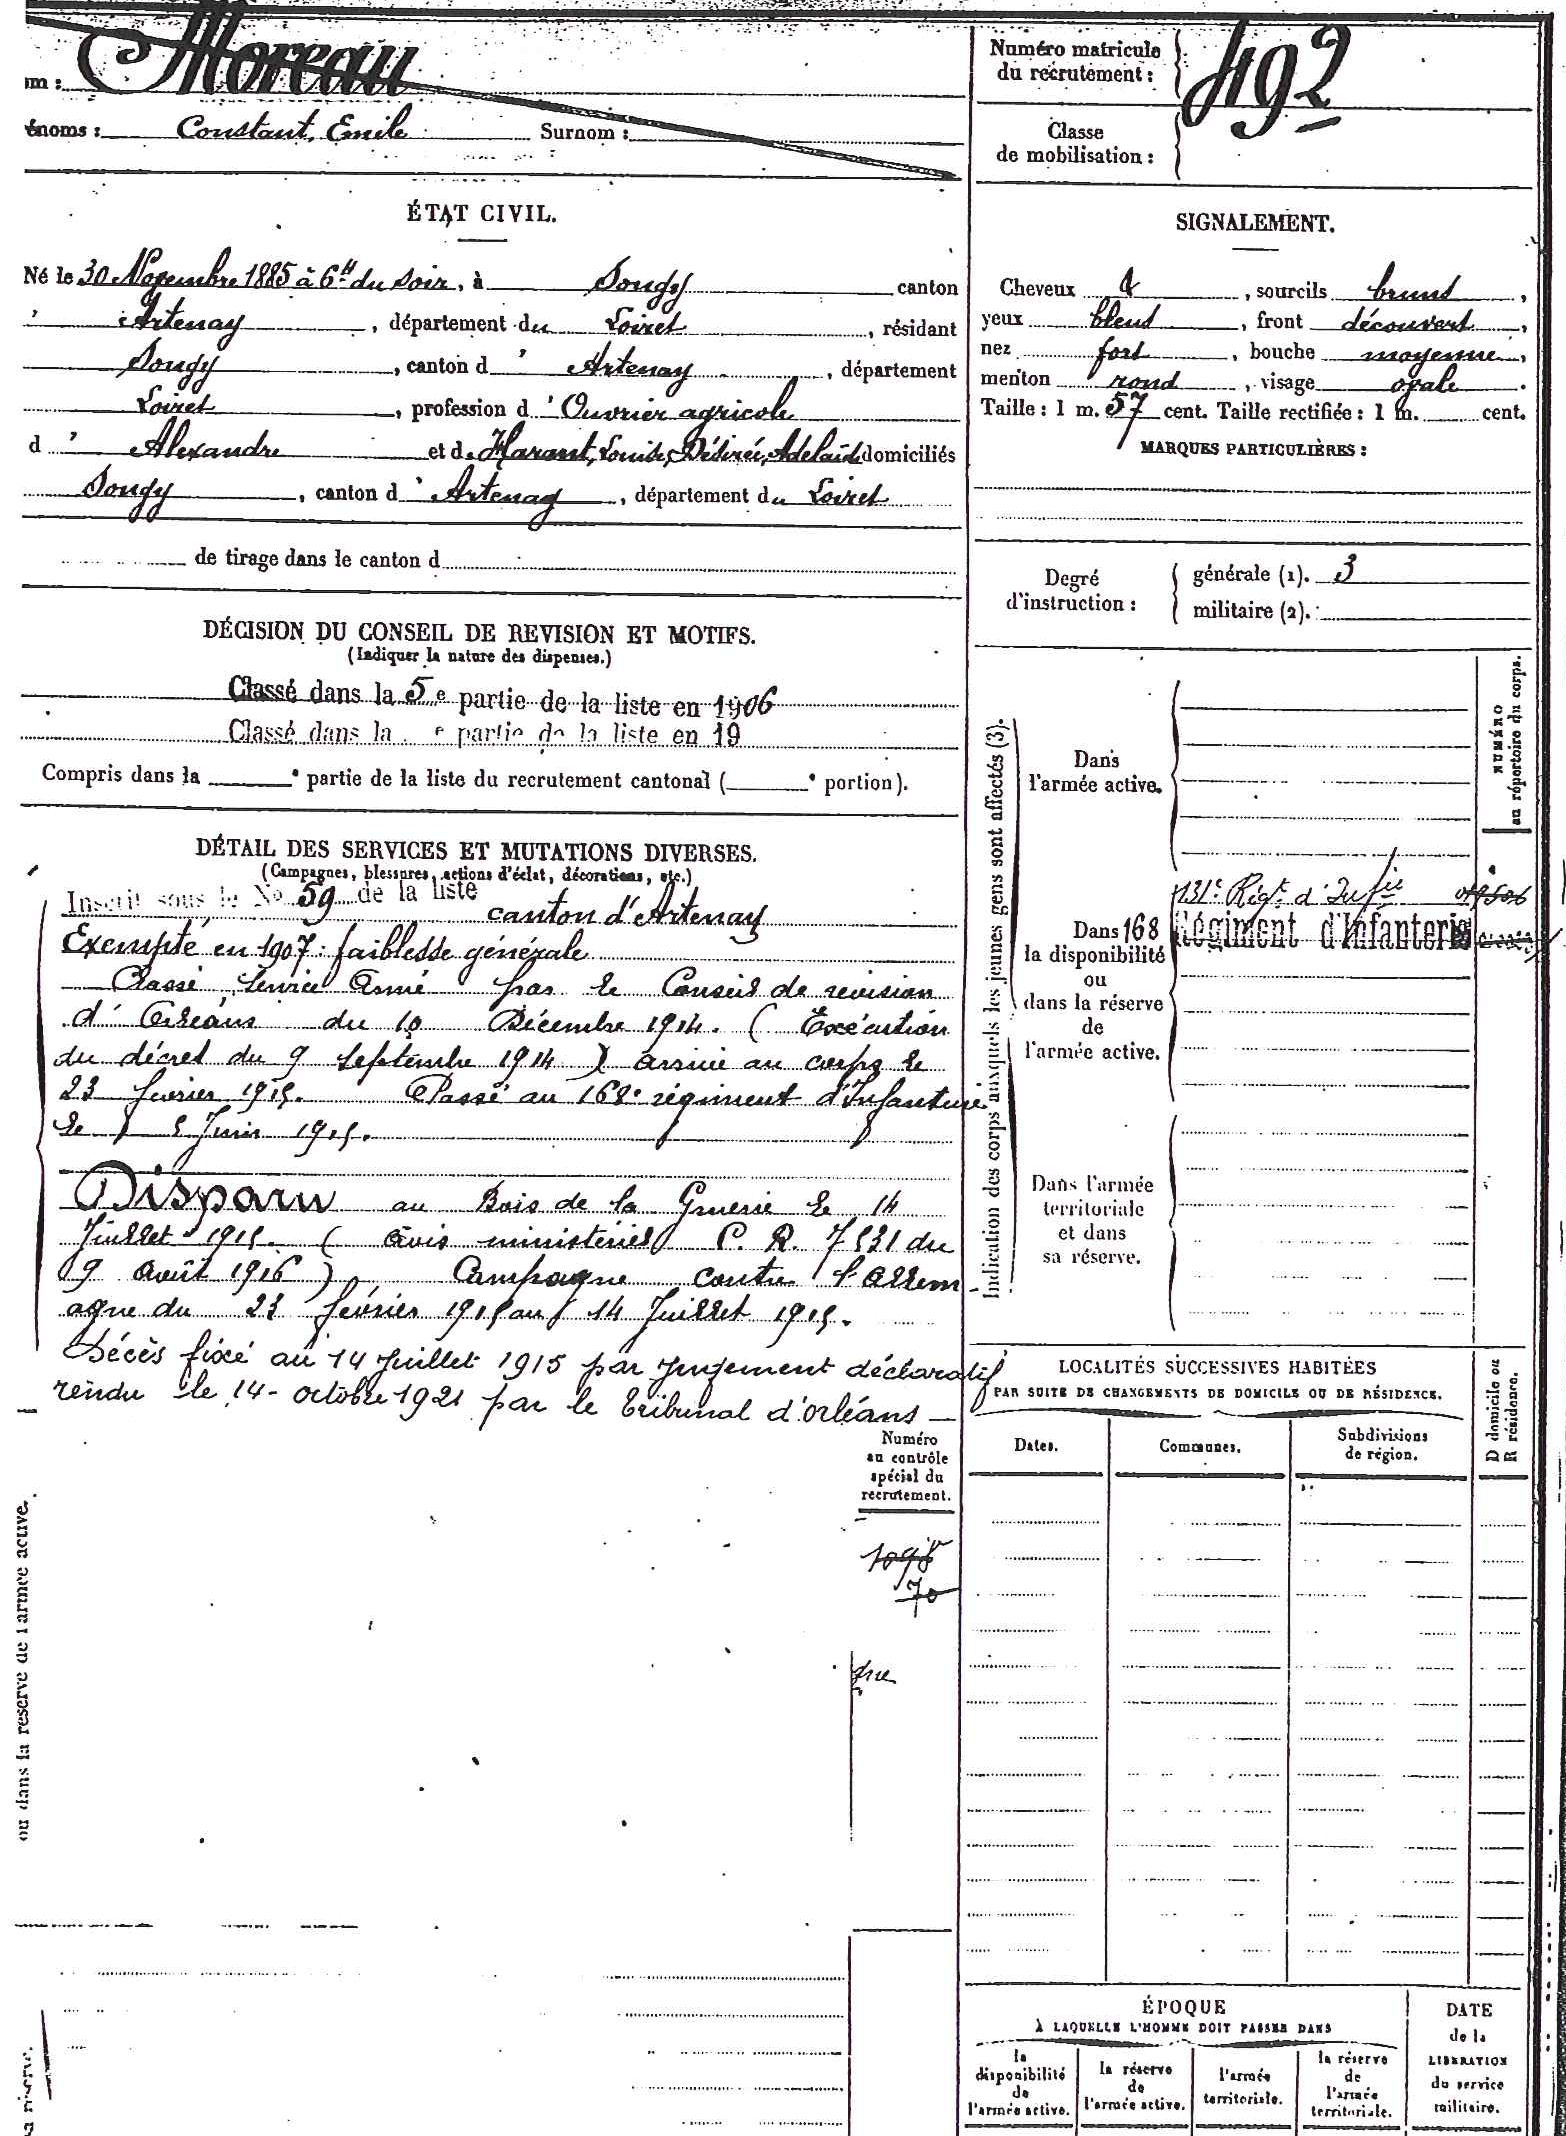 Moreau
Numéro matricule
du recrutement :
492
énoms : Constant, Emile Surnom :
Classe
de mobilisation :
ÉTAT CIVIL.
Né le 30 Novembre 1885 à 6h du soir, à Sougy canton
' Artenay, département du Loiret, résidant
Sougy, canton d' Artenay, département
Loiret, profession d'Ouvrier agricole
d' Alexandre et d. Harant, Louise, Désirée, Adelaïde domiciliés
Sougy, canton d'Artenay, département du Loiret
de tirage dans le canton d
SIGNALEMENT.
Cheveux &, sourcils bruns,
yeux bleus, front découvert,
nez fort, bouche moyenne,
menton rond, visage ovale.
Taille : 1 m. 57 cent. Taille rectifiée : 1 m. cent.
MARQUES PARTICULIÈRES :
Degré
d'instruction :
générale (1). 3
militaire (2).
DÉCISION DU CONSEIL DE REVISION ET MOTIFS.
(Indiquer la nature des dispenses.)
Classé dans la 5e partie de la liste en 1906
Classé dans la e partie de la liste en 19
Compris dans la e partie de la liste du recrutement cantonal ( e portion).
DÉTAIL DES SERVICES ET MUTATIONS DIVERSES.
(Campagnes, blessures, actions d'éclat, décorations, etc.)
Inscrit sous le No 59 de la liste
canton d'Artenay
Exempté en 1907 : faiblesse générale
Classé Service Armé par le Conseil de revision
d'Orléans du 10 Décembre 1914. (Exécution
du décret du 9 septembre 1914) arrivé au corps le
23 février 1915. Passé au 168e régiment d'Infanterie
le 5 Juin 1915.
Disparu au Bois de la Gruerie le 14
Juillet 1915. (Avis ministériel P. R. 7531 du
9 août 1916) Campagne contre l'Allem-
agne du 23 février 1915 au 14 Juillet 1915.
Décès fixé au 14 Juillet 1915 par jugement déclaratif
rendu le 14 octobre 1921 par le tribunal d'Orléans —
Numéro
au contrôle
spécial du
recrutement.
1098
70
ou dans la réserve de l'armée active.
Indication des corps auxquels les jeunes gens sont affectés (3).
NUMÉRO
au répertoire du corps.
Dans
l'armée active.
131e Régt d'Infie
Dans 168 Régiment d'Infanterie
la disponibilité
ou
dans la réserve
de
l'armée active.
Dans l'armée
territoriale
et dans
sa réserve.
LOCALITÉS SUCCESSIVES HABITÉES
PAR SUITE DE CHANGEMENTS DE DOMICILE OU DE RÉSIDENCE.
D domicile ou
R résidence.
Dates.
Communes.
Subdivisions
de région.
ÉPOQUE
À LAQUELLE L'HOMME DOIT PASSER DANS
la
disponibilité
de
l'armée active.
la réserve
de
l'armée active.
l'armée
territoriale.
la réserve
de
l'armée
territoriale.
DATE
de la
LIBÉRATION
du service
militaire.